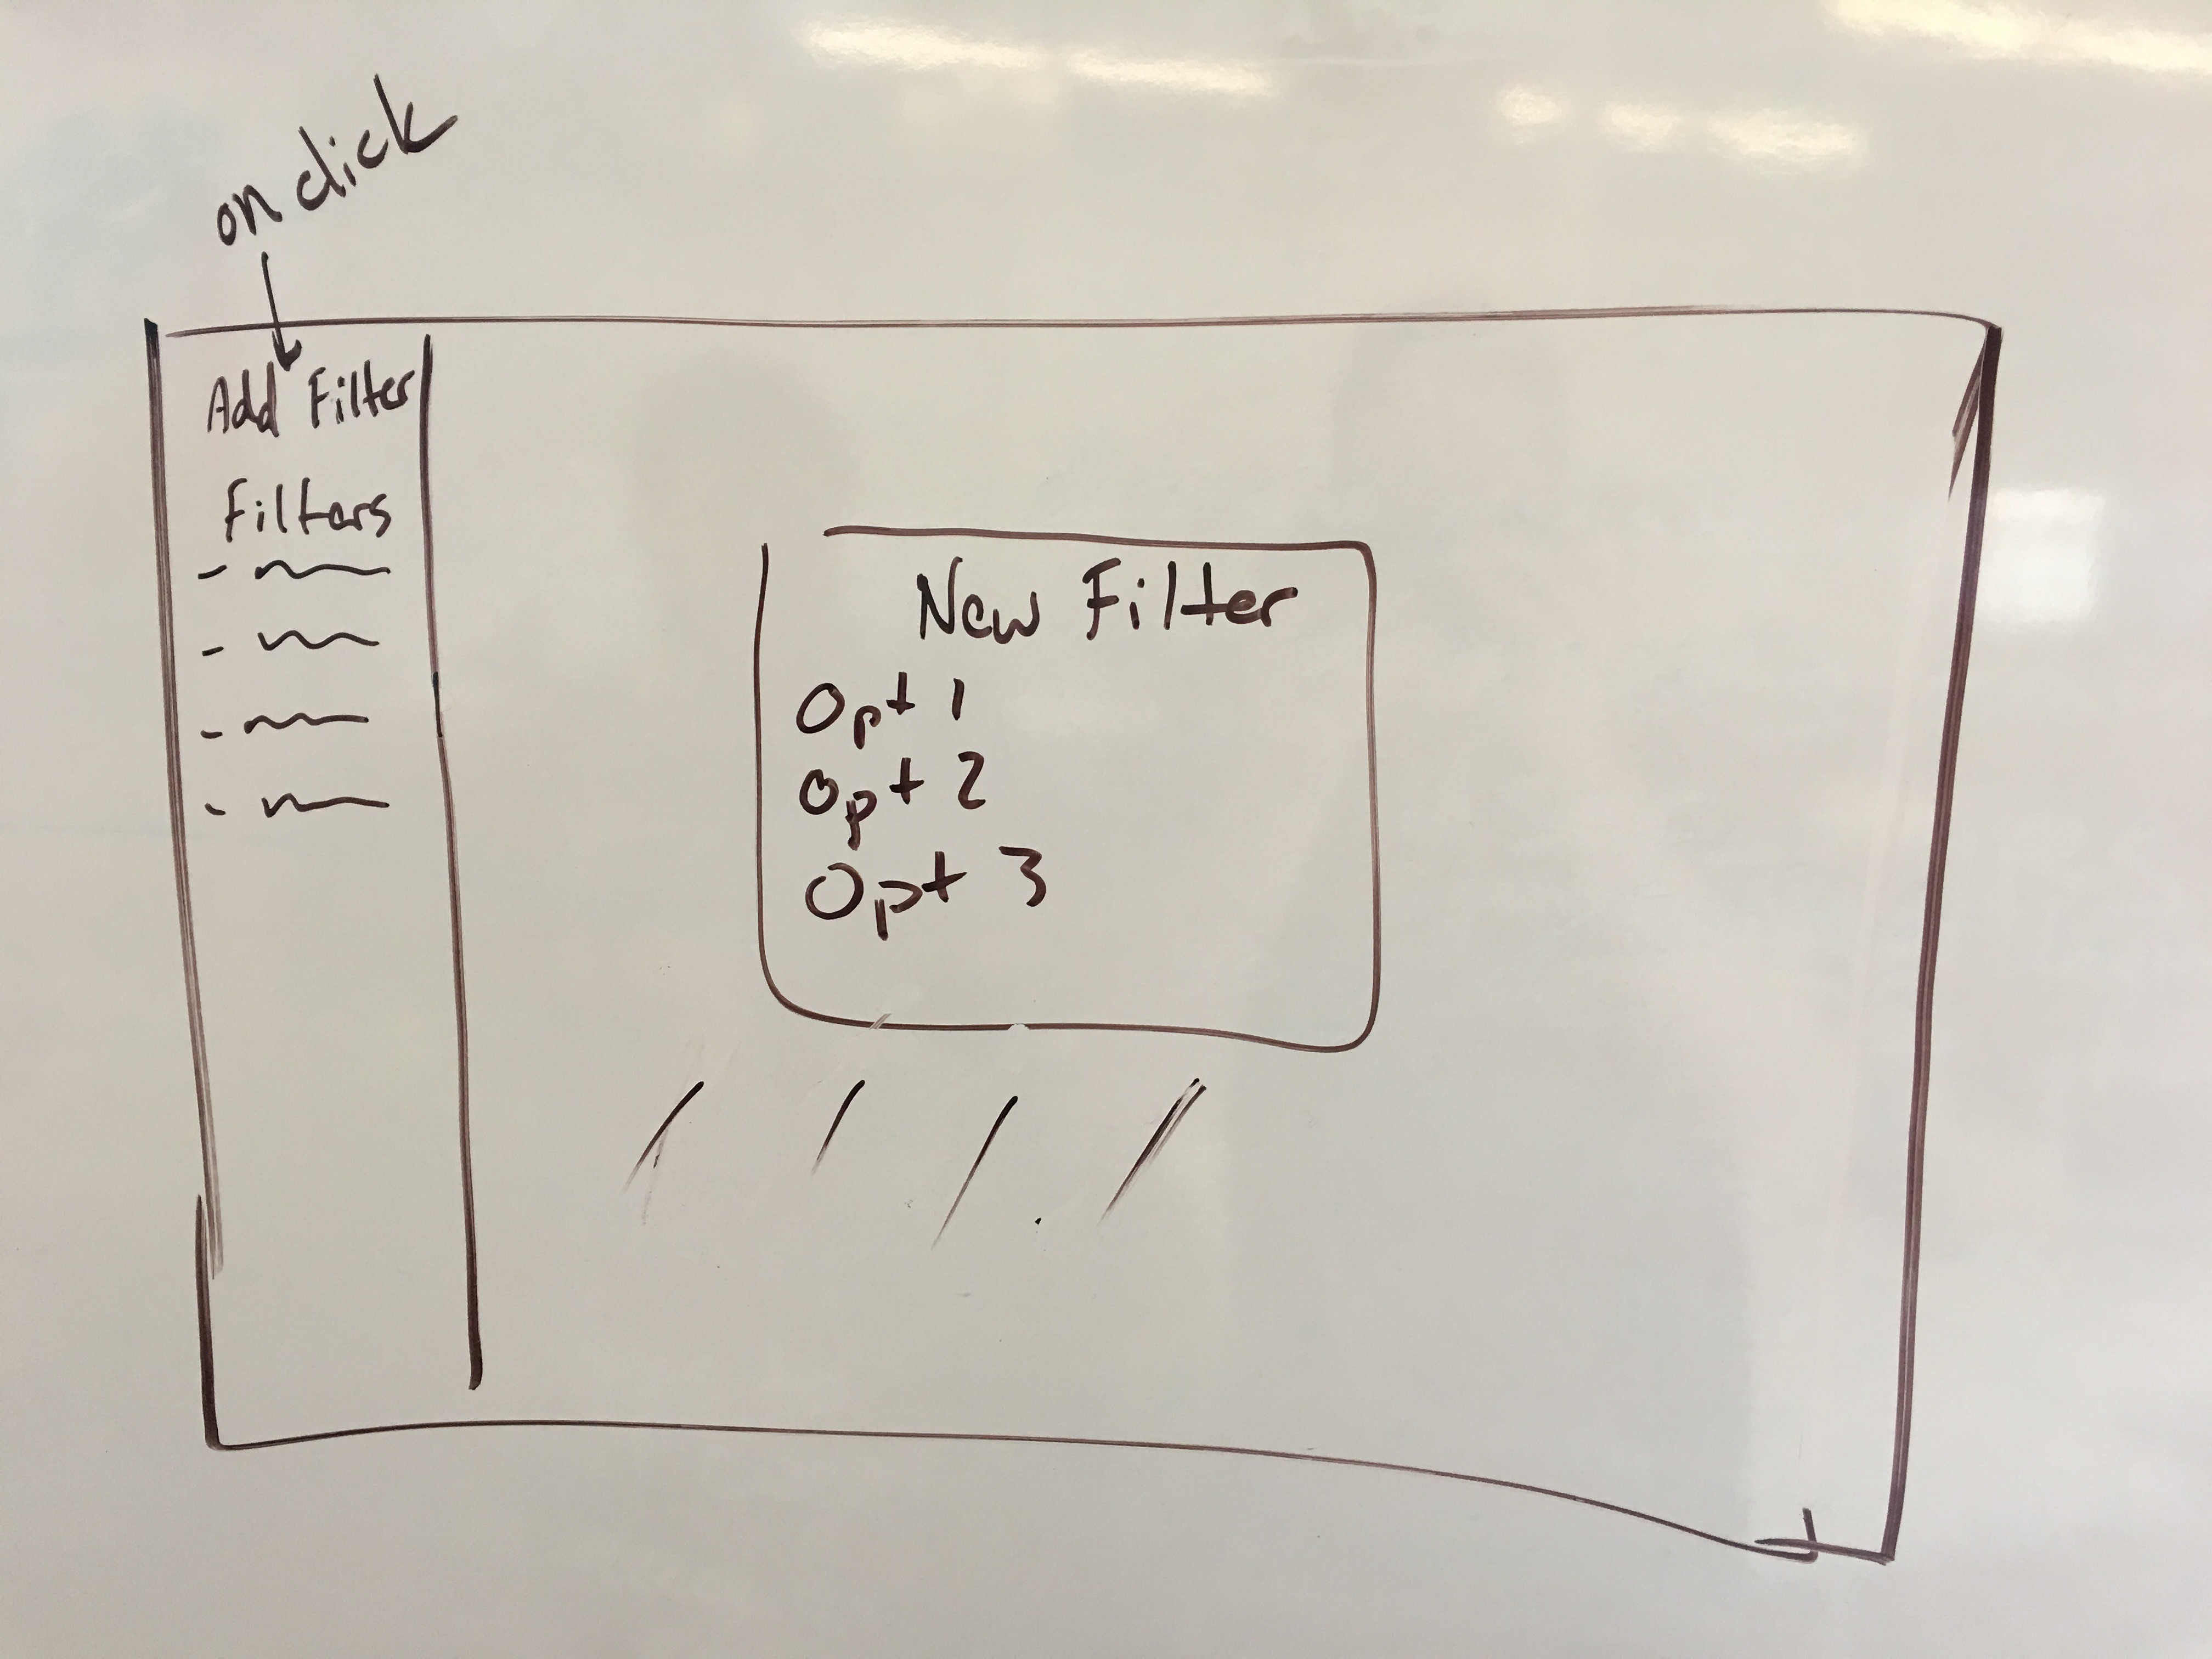 on click
Add Filter
Filters
New Filter
Opt 1
Opt 2
Opt 3